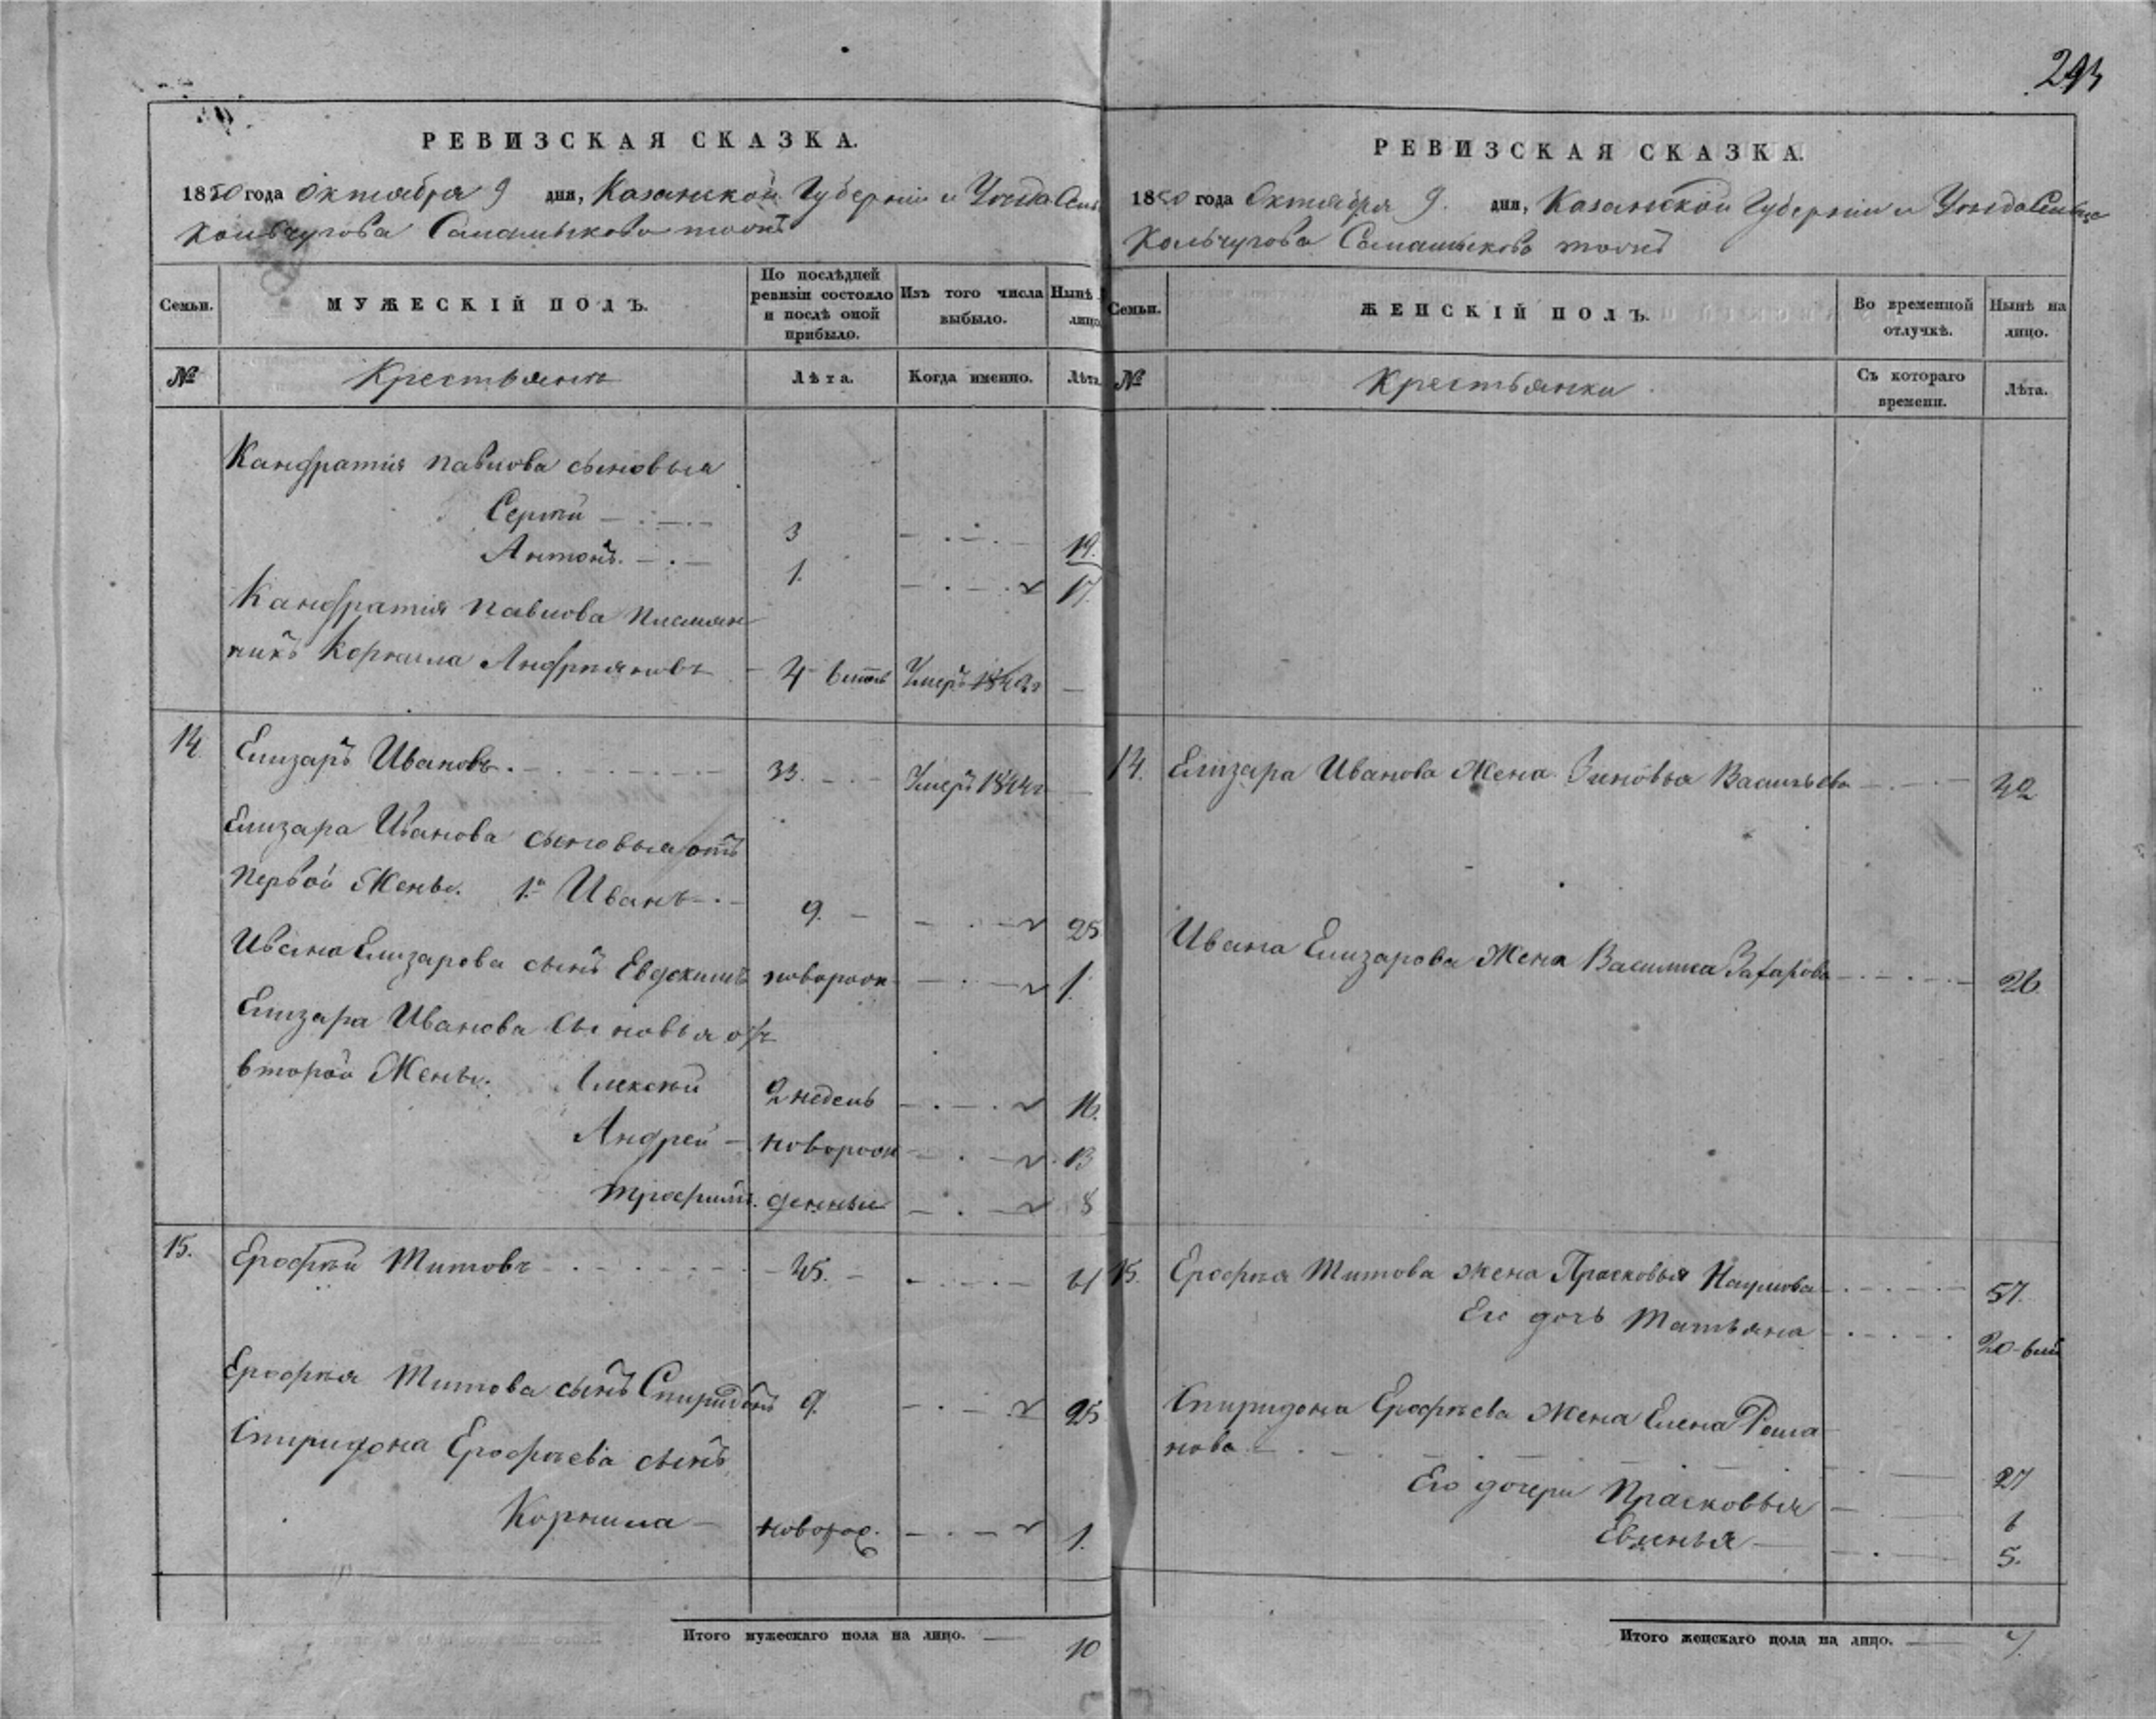 293
РЕВИЗСКАЯ СКАЗКА.
1850 года Октября 9 дня, Казанской Губерніи и Уѣзда
Кольчугова тожъ
Семьи.
МУЖЕСКІЙ ПОЛЪ.
По послѣдней ревизіи состояло и послѣ оной прибыло.
Изъ того числа выбыло.
Нынѣ лицо
№
Крестьянъ
Лѣта.
Когда именно.
Лѣта
Кандратія Павлова сыновья
Сергѣй 3 19.
Антонъ. 1. 17.
Кандратія Павлова Племян
никъ Корнила Андріяновъ 4 Умеръ
14 Елизаръ Ивановъ. 33. Умеръ 1844
Елизара Иванова сыновья отъ
первой Жены. 1й Иванъ 9. 25
Ивана Елизарова сынъ Евдокимъ новорож 1.
Елизара Иванова Сыновья отъ
второй Жены. Алексѣй 2 недель 16.
Андрей новорож 13
Трофимъ. 8
15. Ерофѣй Титовъ 45. 61
Ерофѣя Титова сынъ Спиридонъ 9. 25
Спиридона Ерофѣева сынъ
Корнила новорож. 1.
Итого мужескаго пола на лицо. 10
РЕВИЗСКАЯ СКАЗКА.
1850 года Октября 9. дня, Казанской Губерніи и Уѣзда Сельца
Кольчугова тожъ
Семьи.
ЖЕНСКІЙ ПОЛЪ.
Во временной отлучкѣ.
Нынѣ на лицо.
№
Крестьянки
Съ котораго времени.
Лѣта.
14. Елизара Иванова Жена Зиновья Васильева 42
Ивана Елизарова Жена Василиса Захарова 26.
15. Ерофѣя Титова жена Прасковья Наумова 57.
Его дочь Татьяна 20
Спиридона Ерофѣева Жена Елена Рома
нова 27
Его дочери Прасковья 6
Евгенья 5.
Итого женскаго пола на лицо. 7.